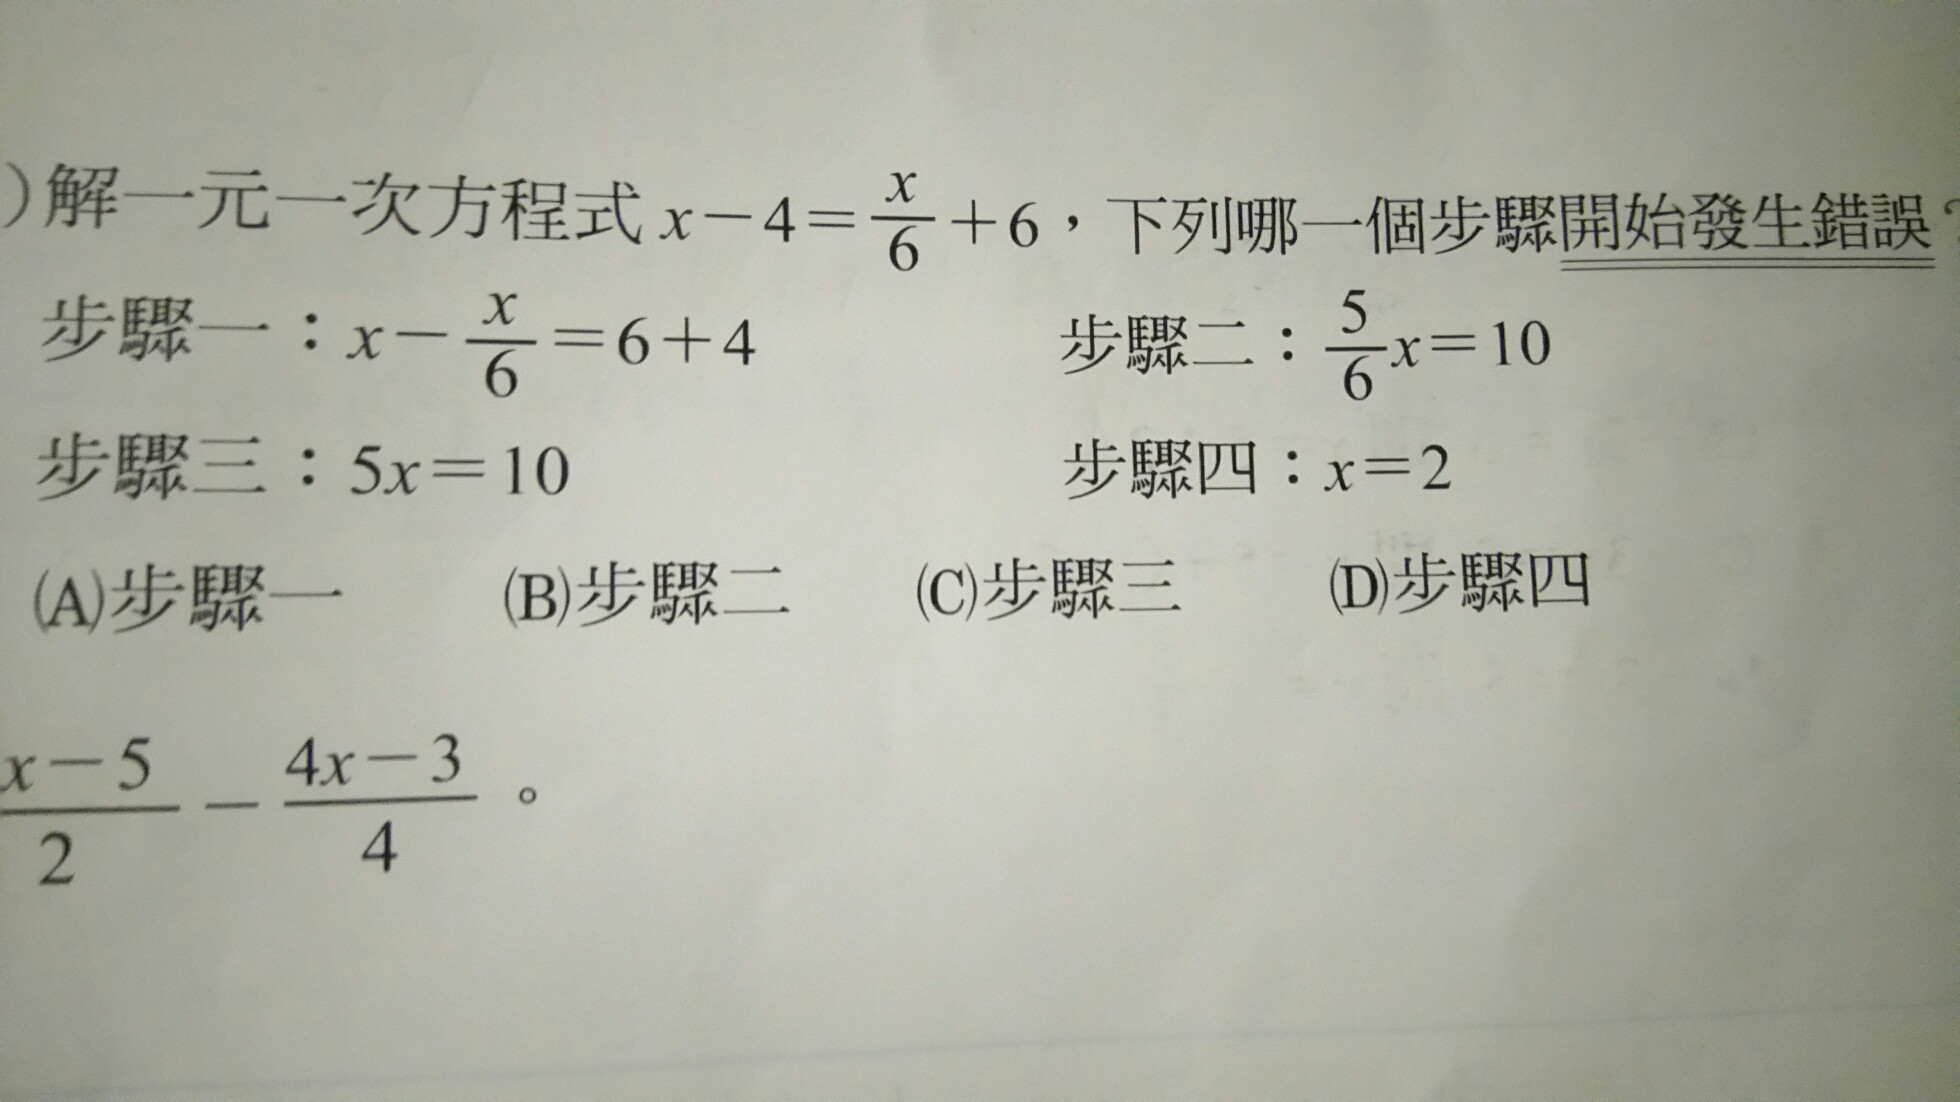 )解一元一次方程式 x－4＝x/6＋6，下列哪一個步驟開始發生錯誤？
步驟一：x－x/6＝6＋4 步驟二：5/6x＝10
步驟三：5x＝10 步驟四：x＝2
(A)步驟一 (B)步驟二 (C)步驟三 (D)步驟四
x－5/2－4x－3/4。